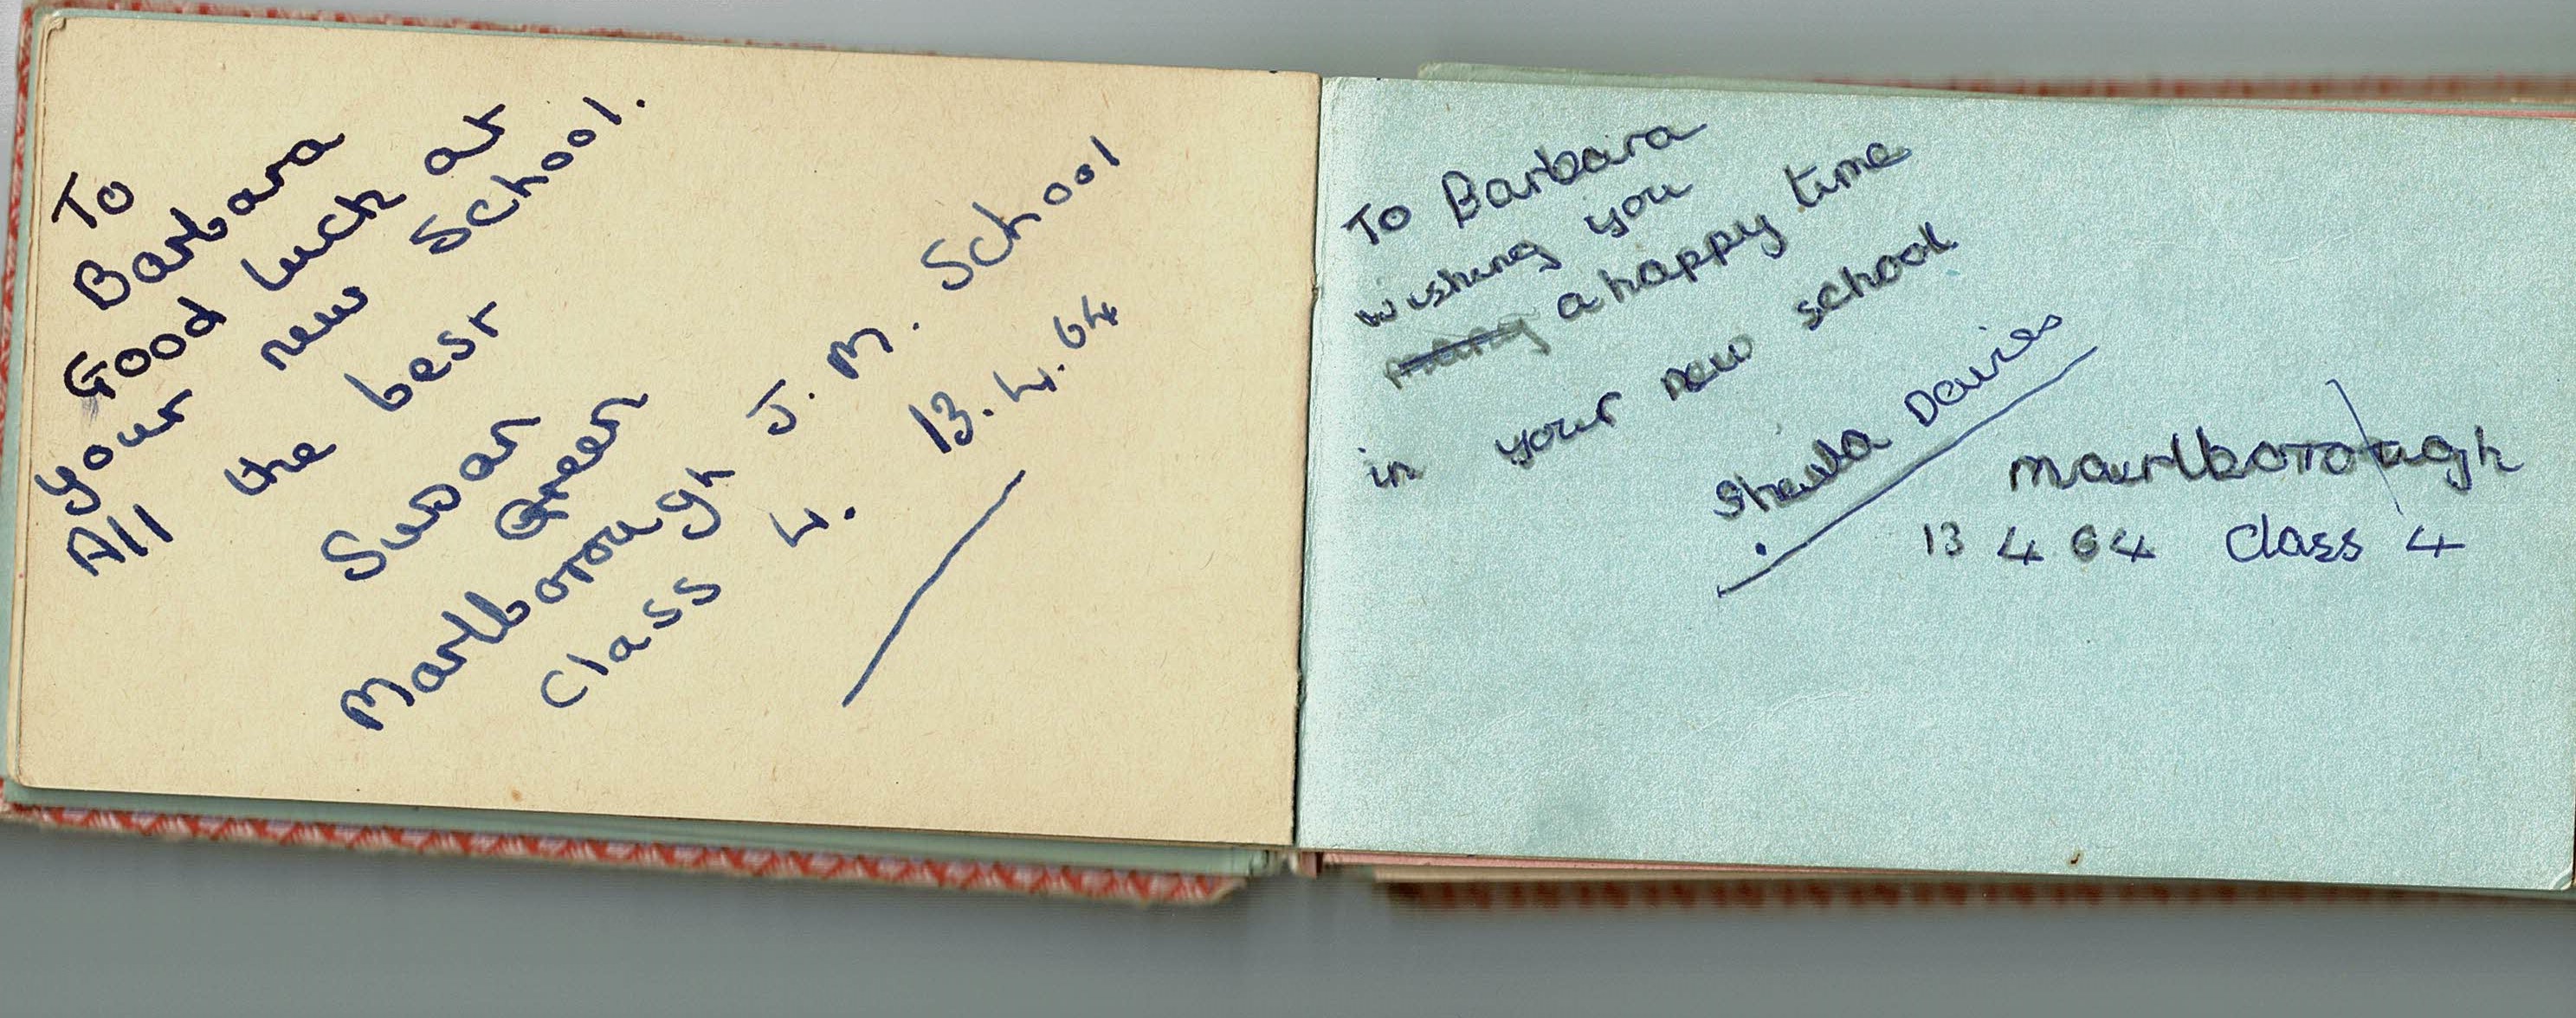 To
Barbara
Good luck at
your new School.
All the best
Susan
Green
Marlborough J. M. School
Class 4. 13.4.64
To Barbara
wishing you
many a happy time
in your new school
Sheila Davies
Marlborough
13 4 64 Class 4